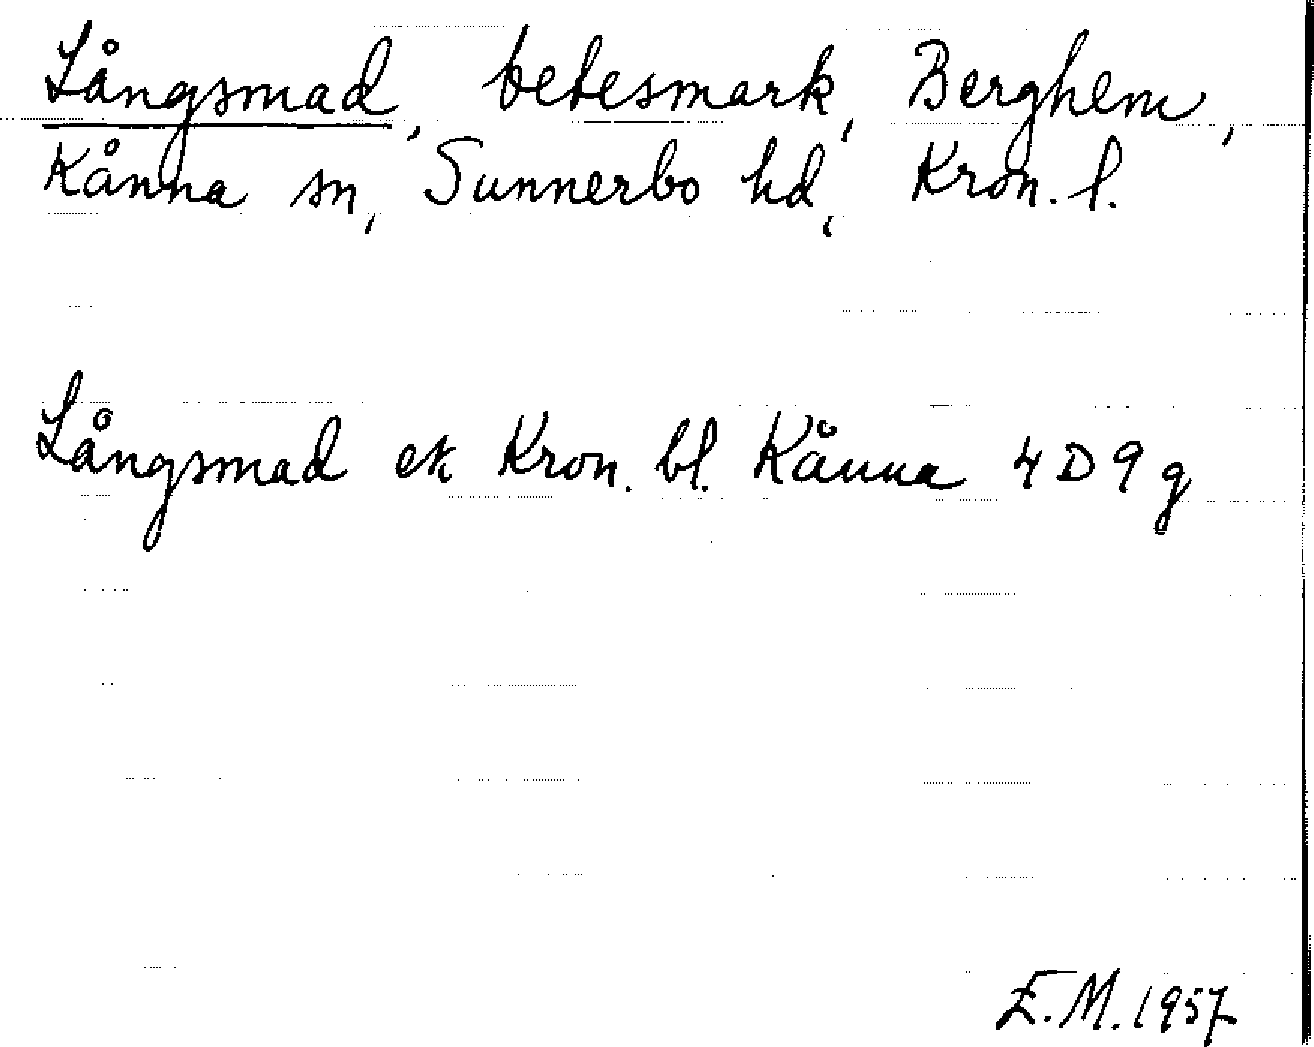 Långsmad, betesmark, Berghem,
Kånna sn, Sunnerbo hd, Kron. l.
Långsmad ek Kron. bl. Kånna 4 D 9 g
E.M. 1957